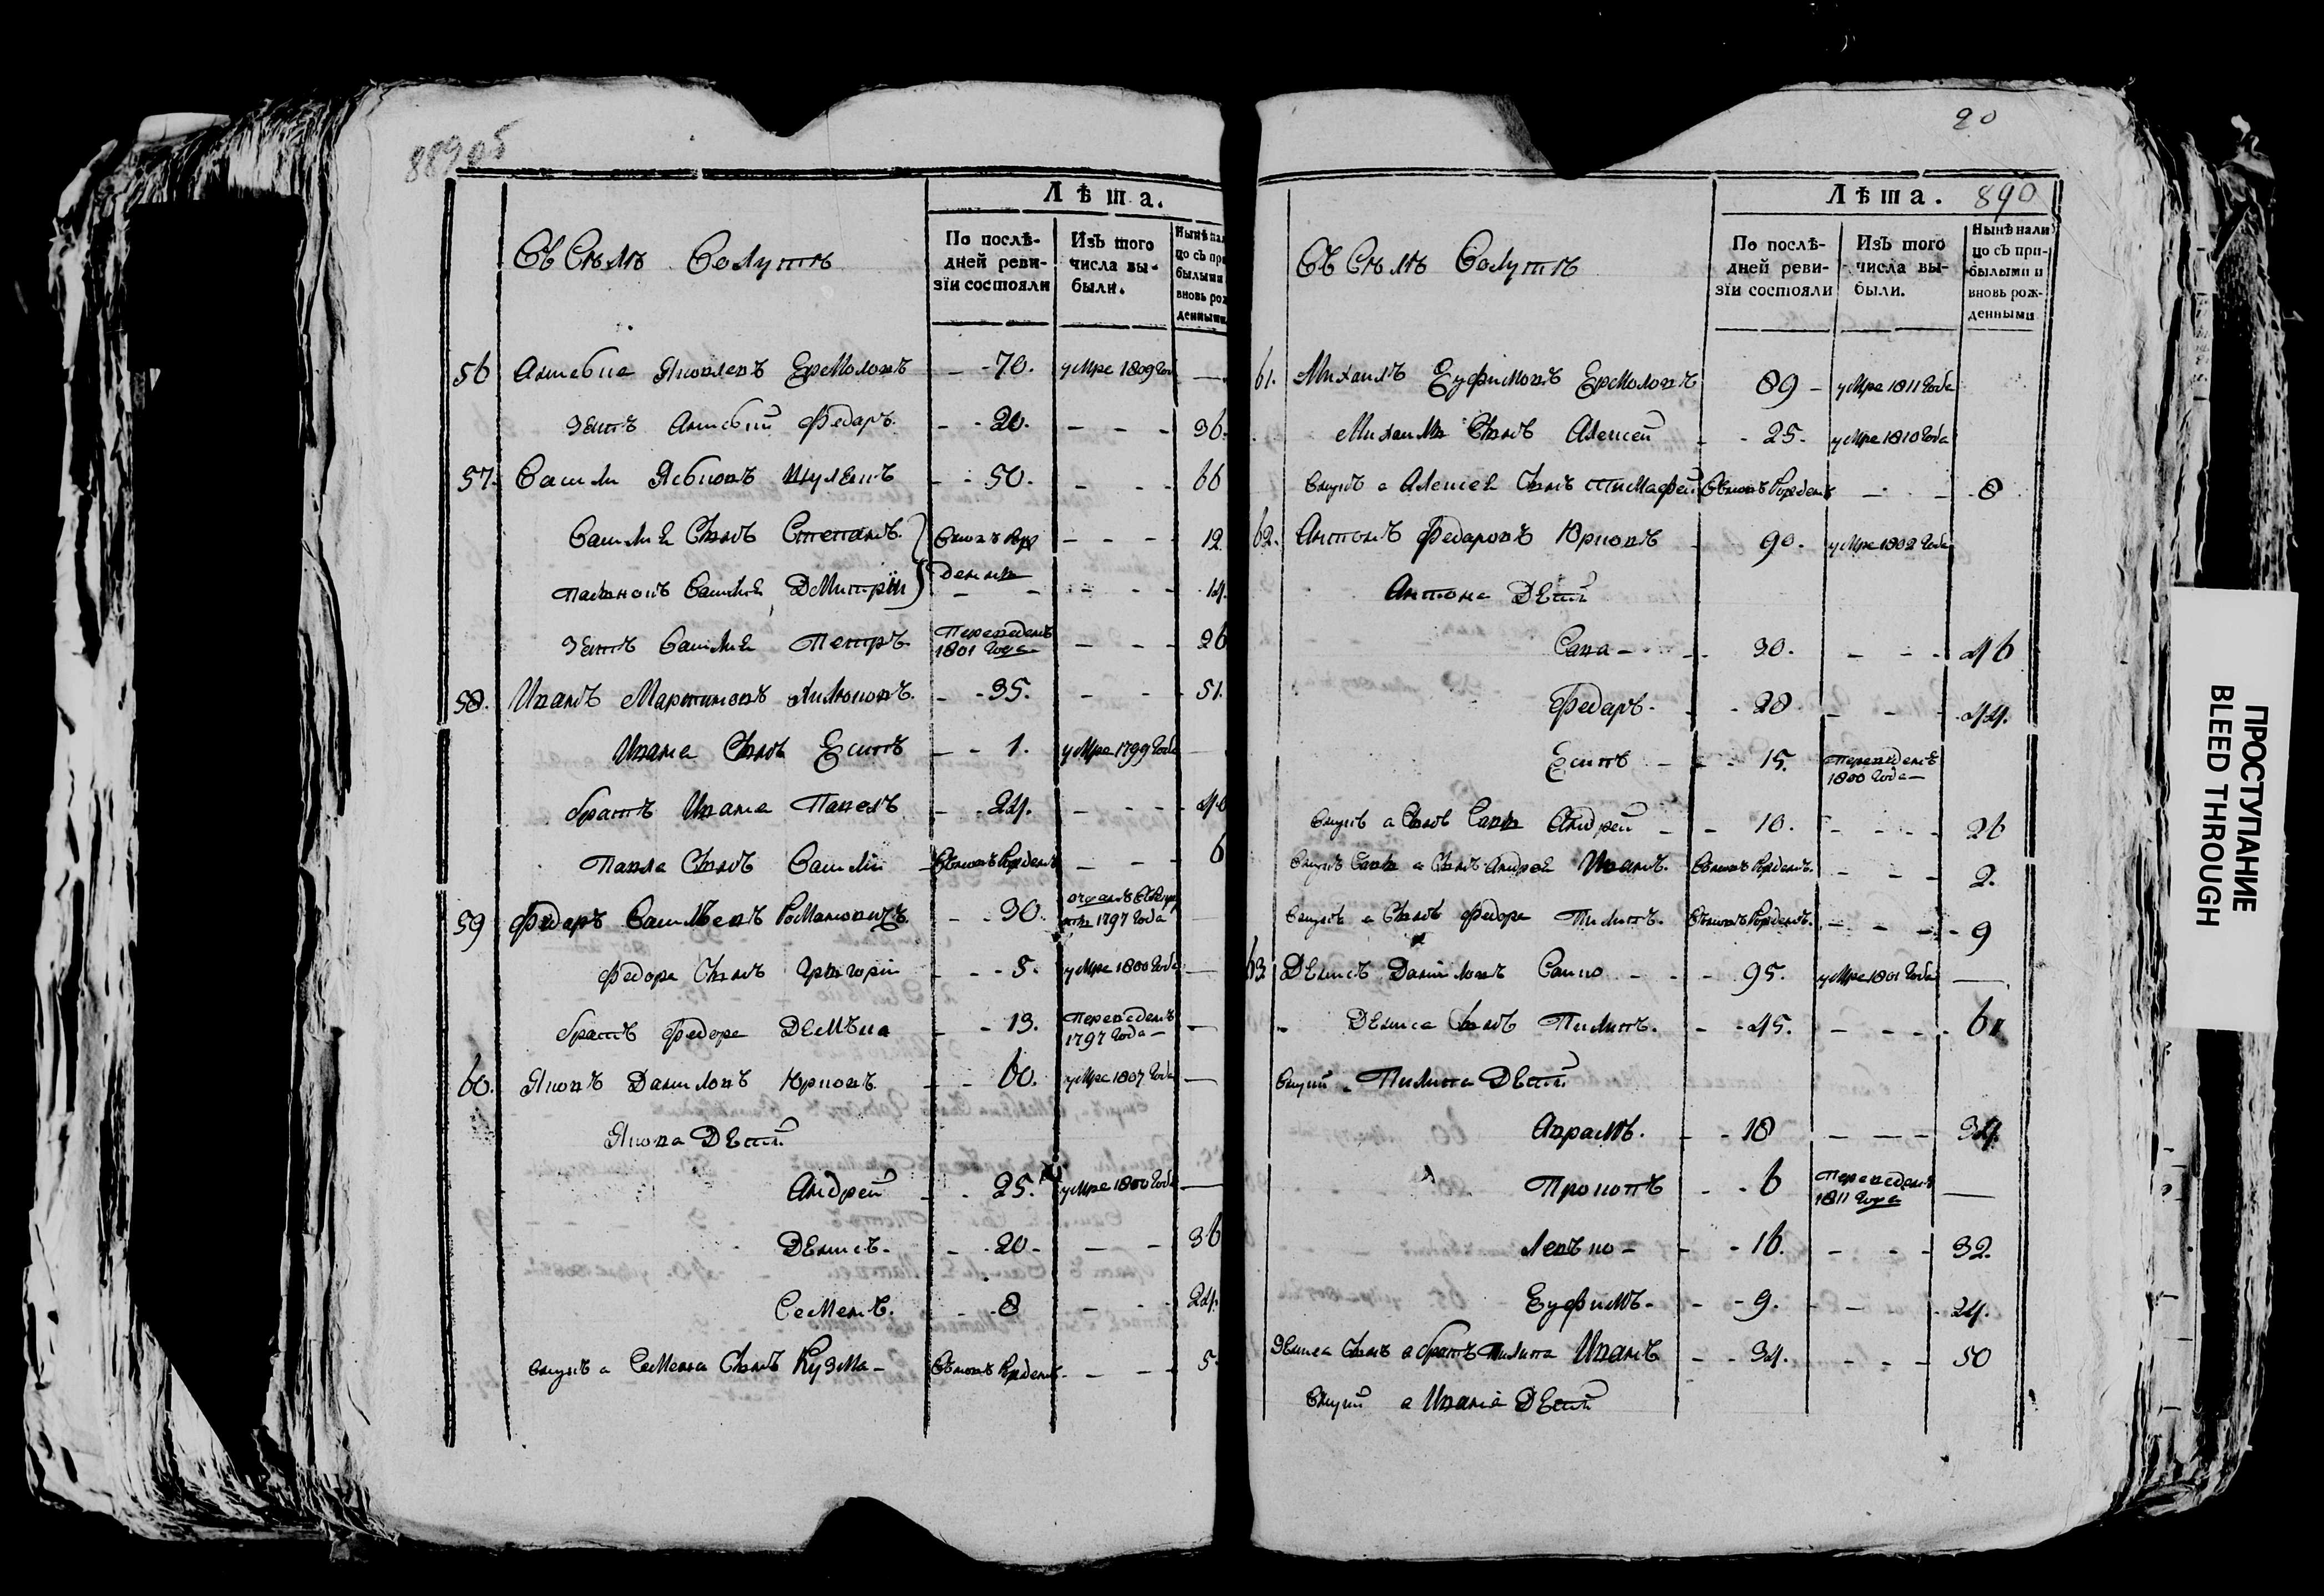 889об
Лѣта.
Въ Сѣлѣ Волутѣ
По послѣ-
дней реви-
зїи состояли
Изъ того
числа вы-
были.
Нынѣ на
цо съ пр
былыми
вновь ро
денными
56 Яковлевъ Ермоловъ - - 70. умре 1809 Го —
Зять Федаръ. - - 20. - - - 36.
57. Васили - - 50. - - - 66
Василия Сынъ Степанъ. Вновь Рож - - - 12
Василия Дмитрiй денны - - - - 14.
Зять Василия Петръ. Переведенъ 1801 Года - - - 26
58. Иванъ Мартиновъ - - 35. - - 51.
Ивана Сынъ Есипъ - - 1. умре 1799 Года —
братъ Ивана Павелъ - - 24. - - - 40
Павла Сынъ Васили Вновь Рожденъ - - - 6
59 Федаръ Васильевъ Романовичъ. - - 30. 1797 Года —
Федора Сынъ Григорiи - - - 5. умре 1800 Года —
братъ Федора - - 13. Переведенъ 1797 Года —
60. Яковъ Даниловъ Юрковъ. - - 60. умре 1807 Года —
Якова Дети
Андрей - - 25. умре 1800 Года —
Денисъ. - - 20 - - - 36
Семенъ. - - 8 - - - 24.
Внукъ а Семена Сынъ Кузма - Вновь Рожденъ - - - 5.
20
890
Лѣта.
Въ Сѣлѣ Волутѣ
По послѣ-
дней реви-
зїи состояли
Изъ того
числа вы-
были.
Нынѣ нали
цо съ при-
былыми и
вновь рож-
денными
61. Михаилъ Еуфимовъ Ермоловъ 89 - умре 1811 Года
Михаила Сынъ Алексей - - 25. умре 1810 Года
Внукъ а Алексея Сынъ Тимафей Вновь Рожденъ - - - 8
62. Антонъ Федаровъ Юрковъ - 90. умре 1802 Года
Антона Дети
Сава - - - 30. - - - 46
Федаръ. - - 28 - - - 44.
Есипъ - - - 15. Переведенъ 1800 Года —
Внукъ а Сынъ Савы Андрей - - 10. - - - 26
Внукъ Савы а Сынъ Андрея Иванъ. Вновь Рожденъ. - - - 2.
Внукъ а Сынъ Федора Пилипъ. Вновь Рожденъ. - - - 9
63 Денисъ Даниловъ - - - 95. умре 1801 Года —
Дениса Сынъ Пилипъ. - - 45. - - - 61
Внуки Пилипа Дети
Аврамъ. - - 18 - - - 34.
Прокопъ - - 6 Переведенъ 1811 Года —
Левъко - - - 16. - - - 32.
Еуфимъ. - - 9. - - - 24.
Дениса Сынъ а братъ Пилипа Иванъ - - 34. - - - 50
Внуки а Ивана Дети
ПРОСТУПАНИЕ
BLEED THROUGH